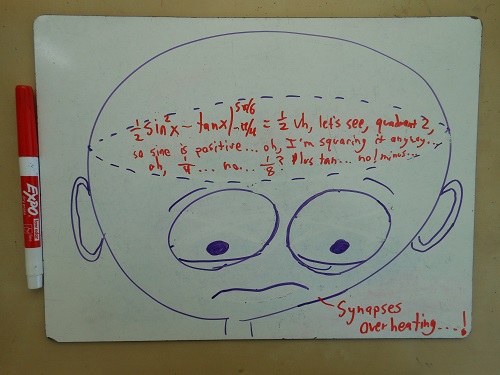 ½ sin²x - tanx |5π/6 -π/6 = ½ Uh, let's see, quadrant 2,
so sine is positive... oh, I'm squaring it anyway...
oh, ¼... no... ⅛? Plus tan... no! minus...
Synapses
overheating...!
EXPO